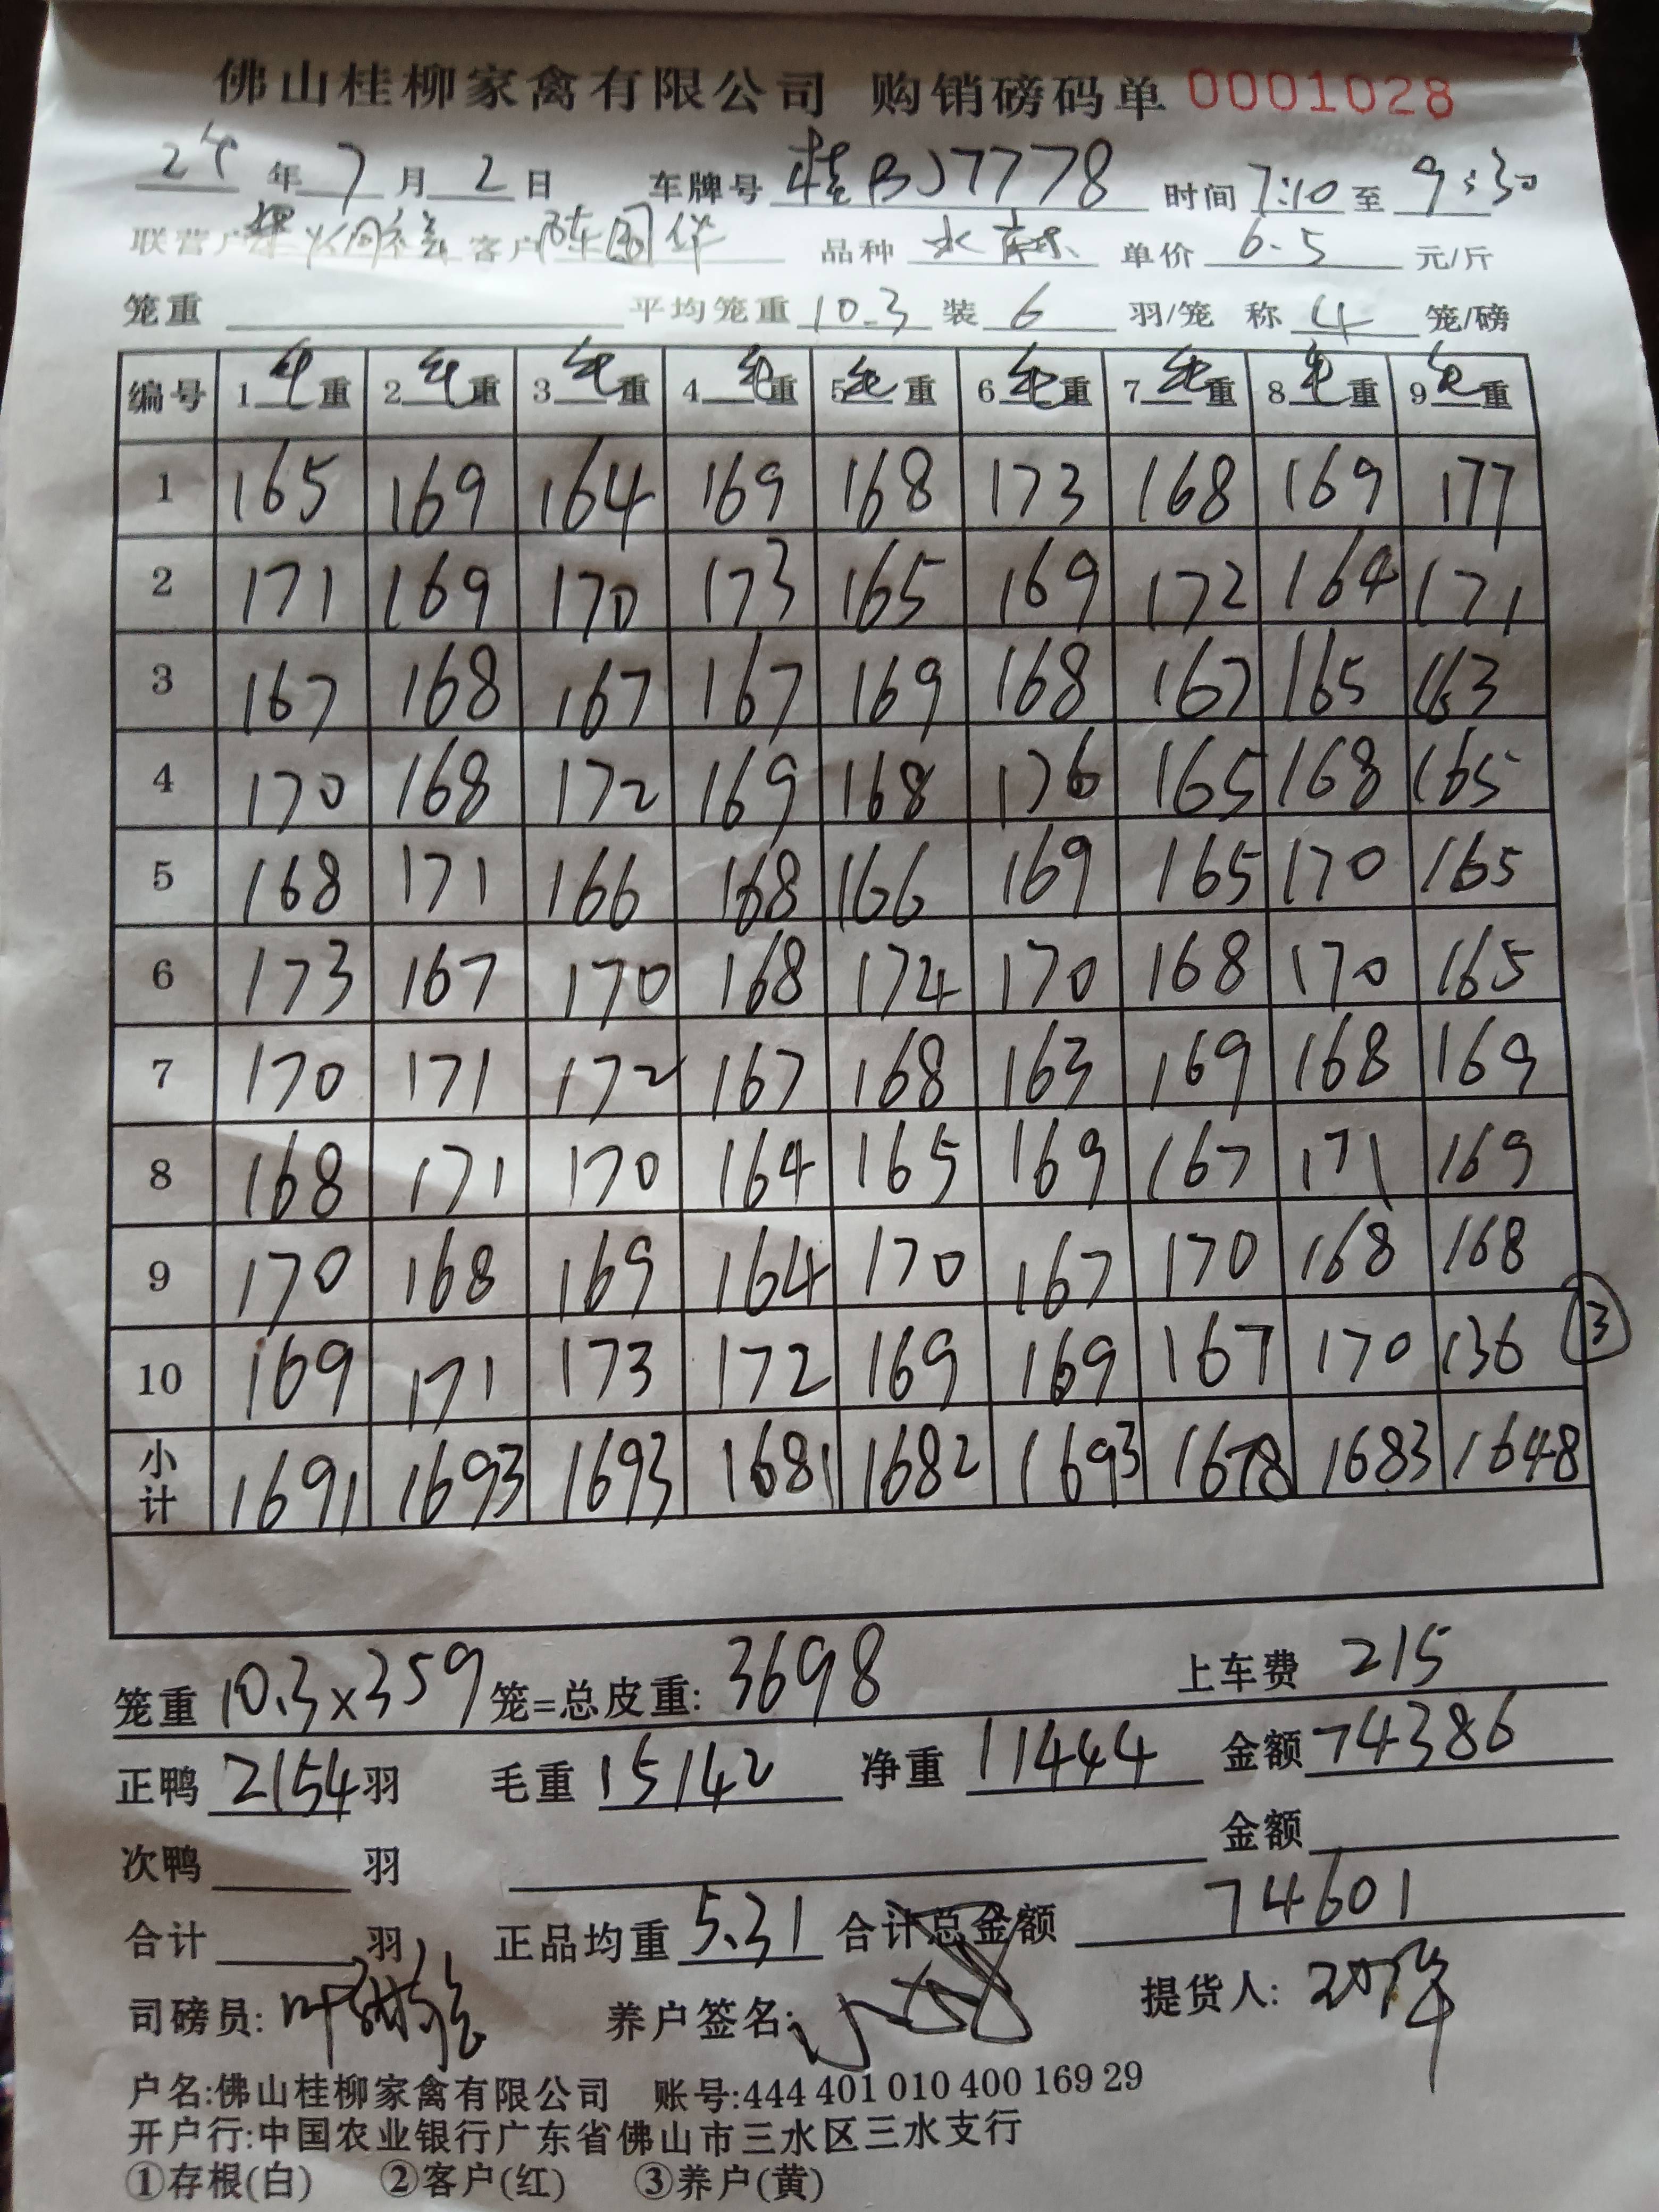 佛山桂柳家禽有限公司 购销磅码单 0001028
24年 7月 2日 车牌号 桂BJ7778 时间 7:10 至 9:30
联营户 客户 陈国华 品种 水 单价 6.5 元/斤
笼重 平均笼重 10.3 装 6 羽/笼 称 4 笼/磅
编号 1 毛重 2 毛重 3 毛重 4 毛重 5 毛重 6 毛重 7 毛重 8 毛重 9 毛重
1 165 169 164 169 168 173 168 169 177
2 171 169 170 173 165 169 172 164 171
3 167 168 167 167 169 168 167 165 163
4 170 168 172 169 168 176 165 168 165
5 168 171 166 168 166 169 165 170 165
6 173 167 170 168 174 170 168 170 165
7 170 171 172 167 168 163 169 168 169
8 168 171 170 164 165 169 167 171 169
9 170 168 169 164 170 167 170 168 168
10 169 171 173 172 169 169 167 170 136 ③
小计 1691 1693 1693 1681 1682 1693 1678 1683 1648
笼重 10.3×359 笼=总皮重: 3698 上车费 215
正鸭 2154 羽 毛重 15142 净重 11444 金额 74386
次鸭 羽 金额
合计 羽 正品均重 5.31 合计总金额 74601
司磅员: 养户签名: 提货人:
户名:佛山桂柳家禽有限公司 账号:444 401 010 400 169 29
开户行:中国农业银行广东省佛山市三水区三水支行
①存根(白) ②客户(红) ③养户(黄)